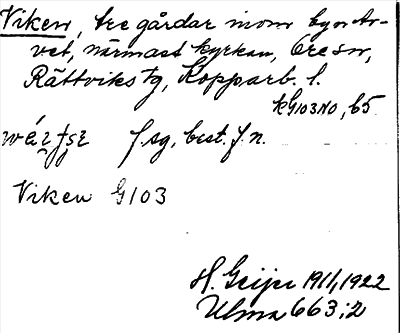 Viken, tre gårdar inom byn Ar-
vet, närmast kyrkan, Ore sn,
Rättviks tg, Kopparb. l.
kG103NO, 65
f. sg. best. f. n.
Viken G103
H. Geijer 1911, 1922
Ulma 663:2